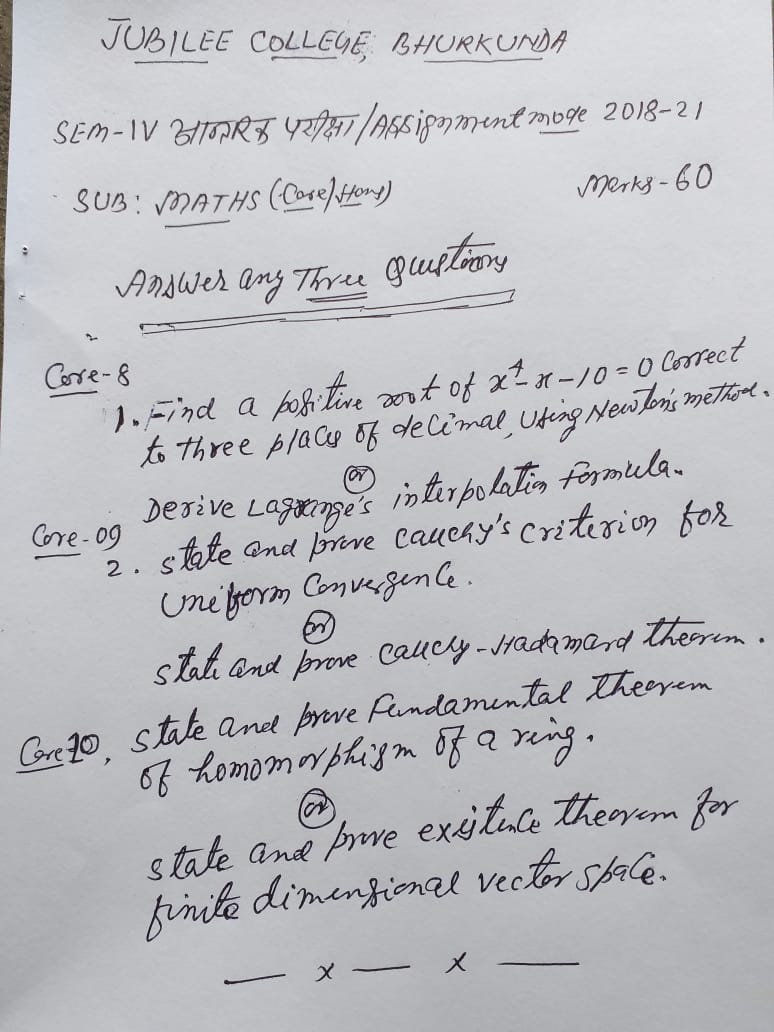 JUBILEE COLLEGE, BHURKUNDA
SEM-IV आन्तरिक परीक्षा/Assignment mode 2018-21
SUB: MATHS (Core/Hons) Marks-60
Answer any Three Questions
Core-8
1. Find a positive root of x⁴-x-10=0 Correct
to three places of decimal, Using Newton's method.
or
Derive Lagrange's interpolation formula.
Core-09
2. state and prove cauchy's criterion for
Uniform Convergence.
or
state and prove cauchy-Hadamard theorem.
Core 10, state and prove Fundamental theorem
of homomorphism of a ring.
or
state and prove existence theorem for
finite dimensional vector space.
— x — x —